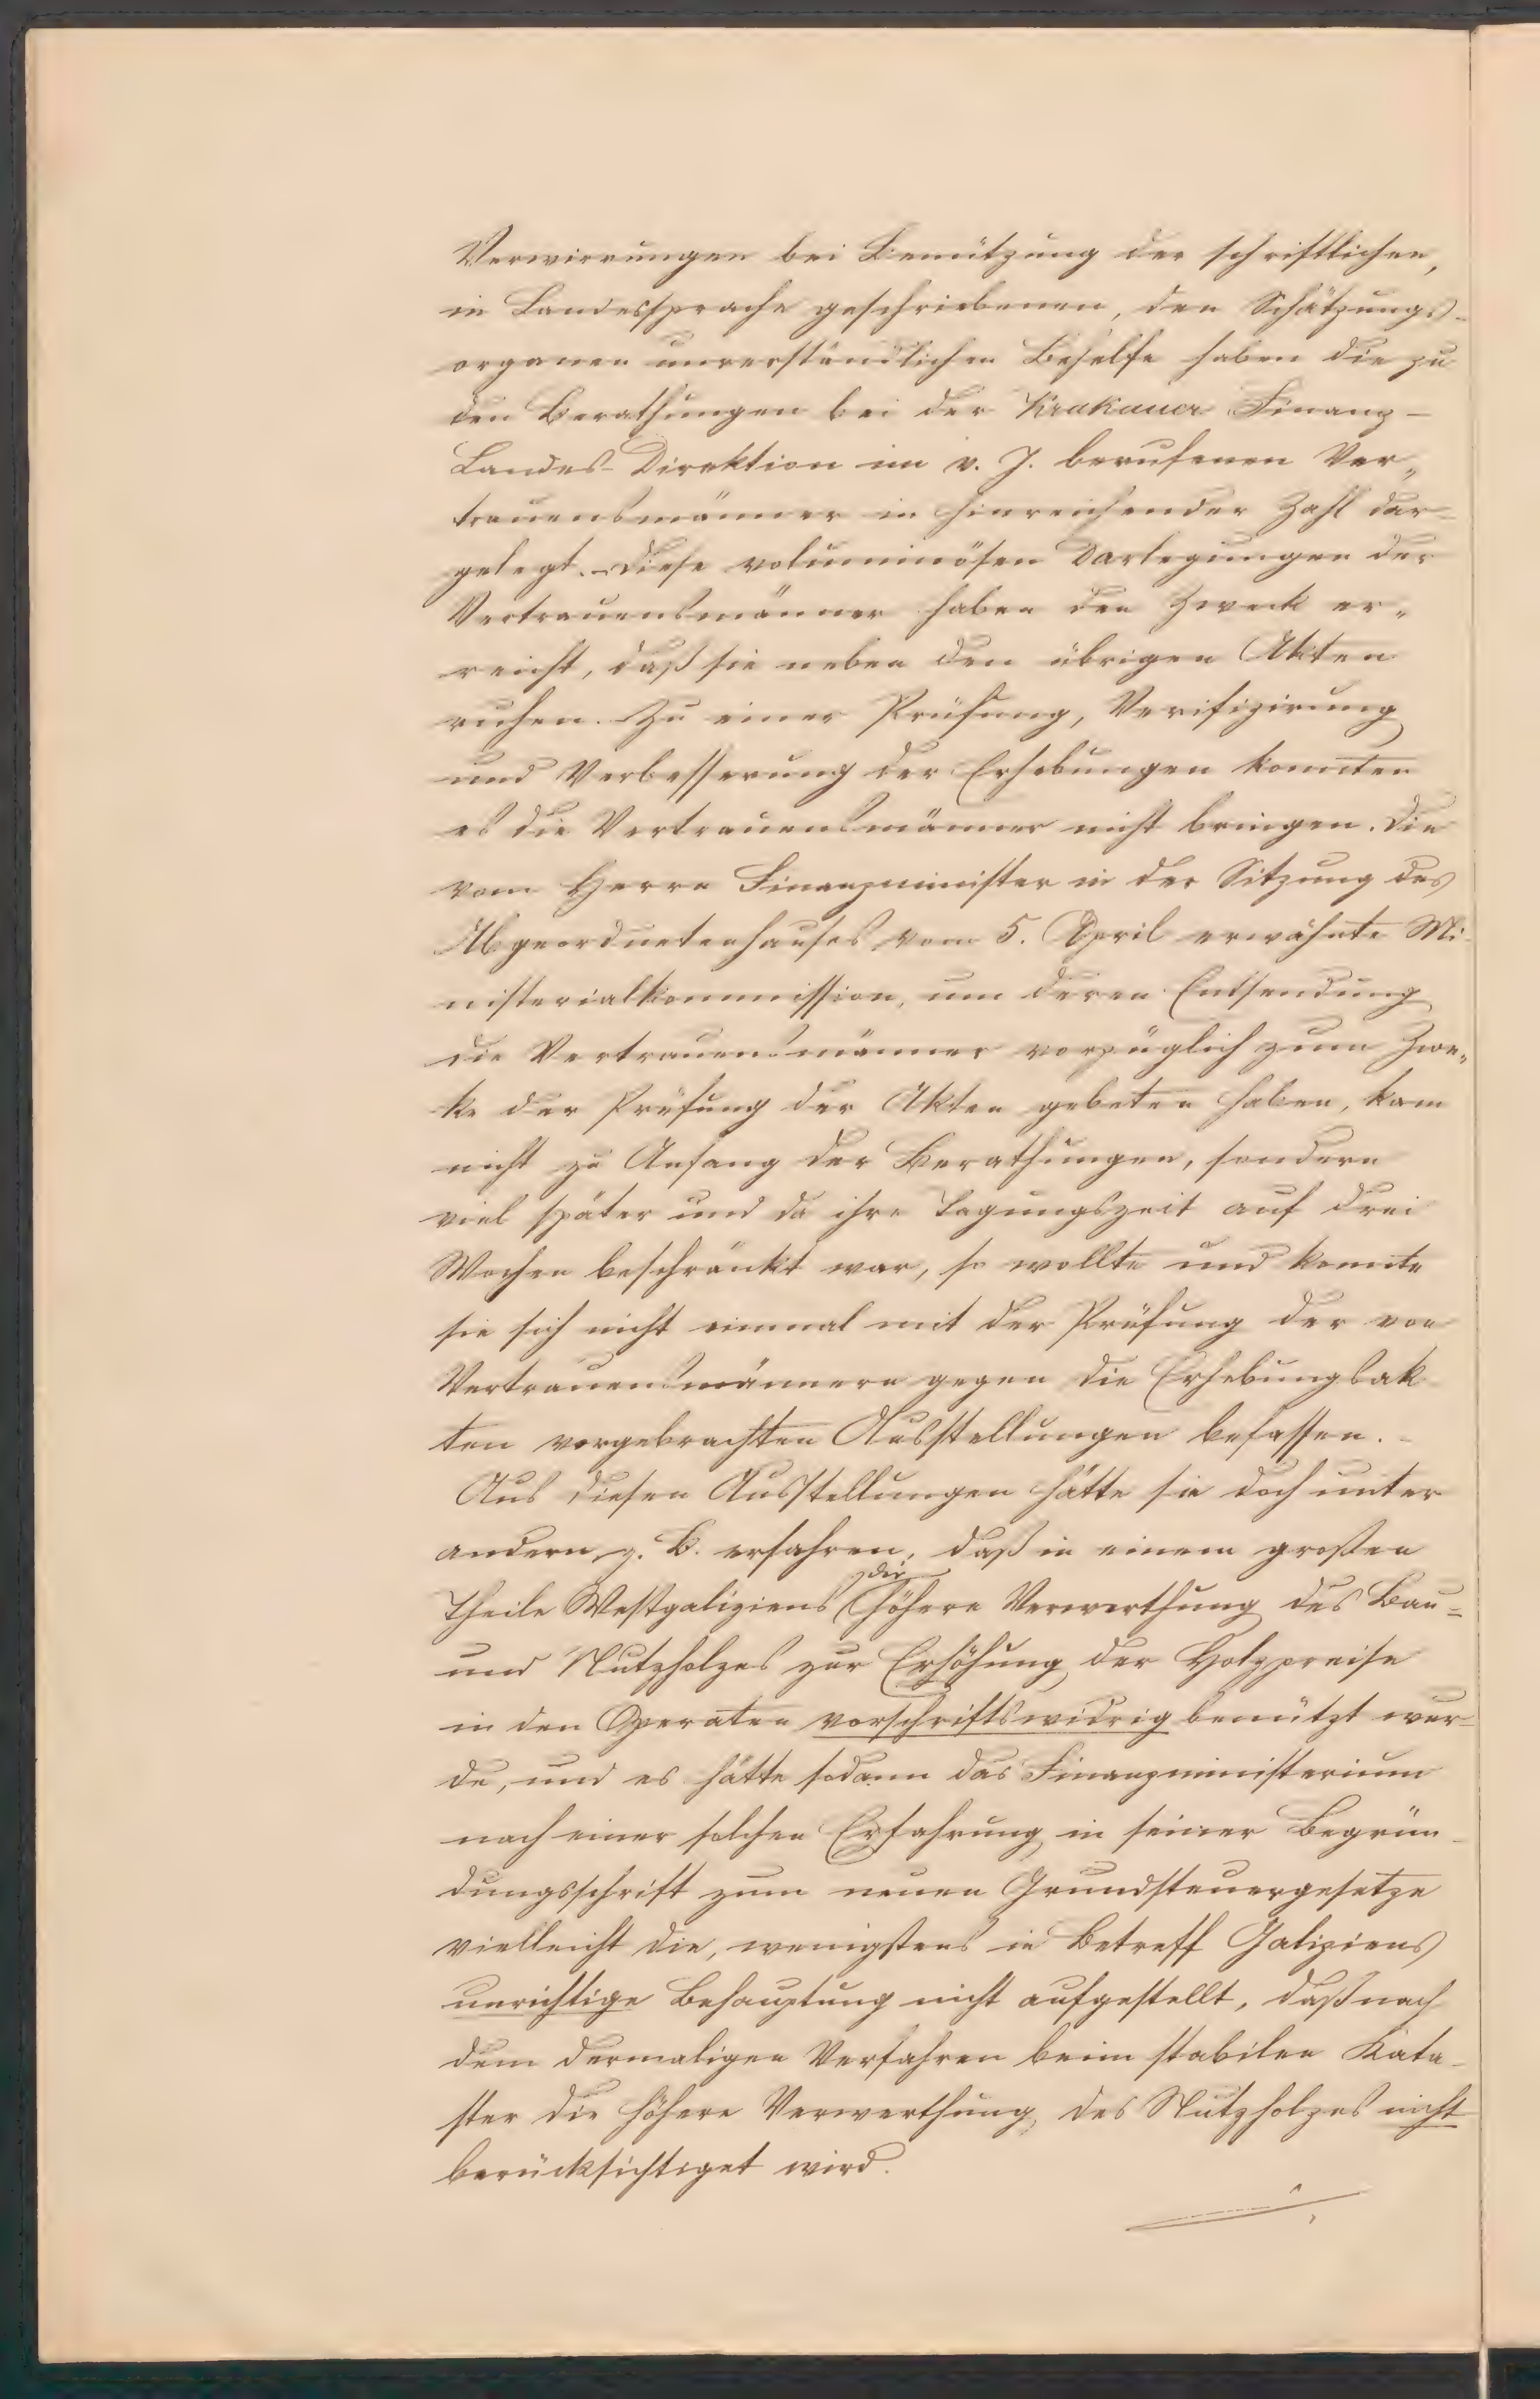 Verwirrungen bei Benützung der schriftlichen,
in Landessprache geschriebenen, den Schätzungs-
organen unverständlichen Behelfe haben die zu
den Berathungen bei der Krakauer Finanz-
Landes-Direktion im v. J. berufenen Ver„
trauensmänner in hinreichender Zahl dar=
gelegt. Diese voluminösen Darlegungen der
Vertrauensmänner haben den Zweck er„
reicht, daß sie neben den übrigen Akten
ruhen. Zu einer Prüfung, Verifizirung
und Verbesserung der Erhebungen konnten
es die Vertrauensmänner nicht bringen. Die
vom Herrn Finanzminister in der Sitzung des
Abgeordnetenhauses vom 5. April erwähnte Mi-
nisterialkommission, um deren Entsendung
die Vertrauensmänner vorzüglich zum Zwe„
ke der Prüfung der Akten gebeten haben, kam
nicht zu Anfang der Berathungen, sondern
viel später und da ihre Tagungszeit auf drei
Wochen beschränkt war, so wollte und konnte
sie sich nicht einmal mit der Prüfung der von
Vertrauensmännern gegen die Erhebungsak
ten vorgebrachten Ausstellungen befassen.-
Aus diesen Ausstellungen hätte sie doch unter
andern z. B. erfahren, daß in einem großen
Theile Westgaliziens die höhere Verwerthung des Bau=
und Nutzholzes zur Erhöhung der Holzpreise
in den Operaten vorschriftswidrig benützt wur-
de, und es hätte sodann das Finanzministerium
nach einer solchen Erfahrung in seiner Begrün-
dungsschrift zum neuen Grundsteuergesetze
vielleicht die, wenigstens in Betreff Galiziens
unrichtige Behauptung nicht aufgestellt, daß nach
dem dermaligen Verfahren beim stabilen Kata-
ster die höhere Verwerthung des Nutzholzes nicht
berücksichtiget wird.